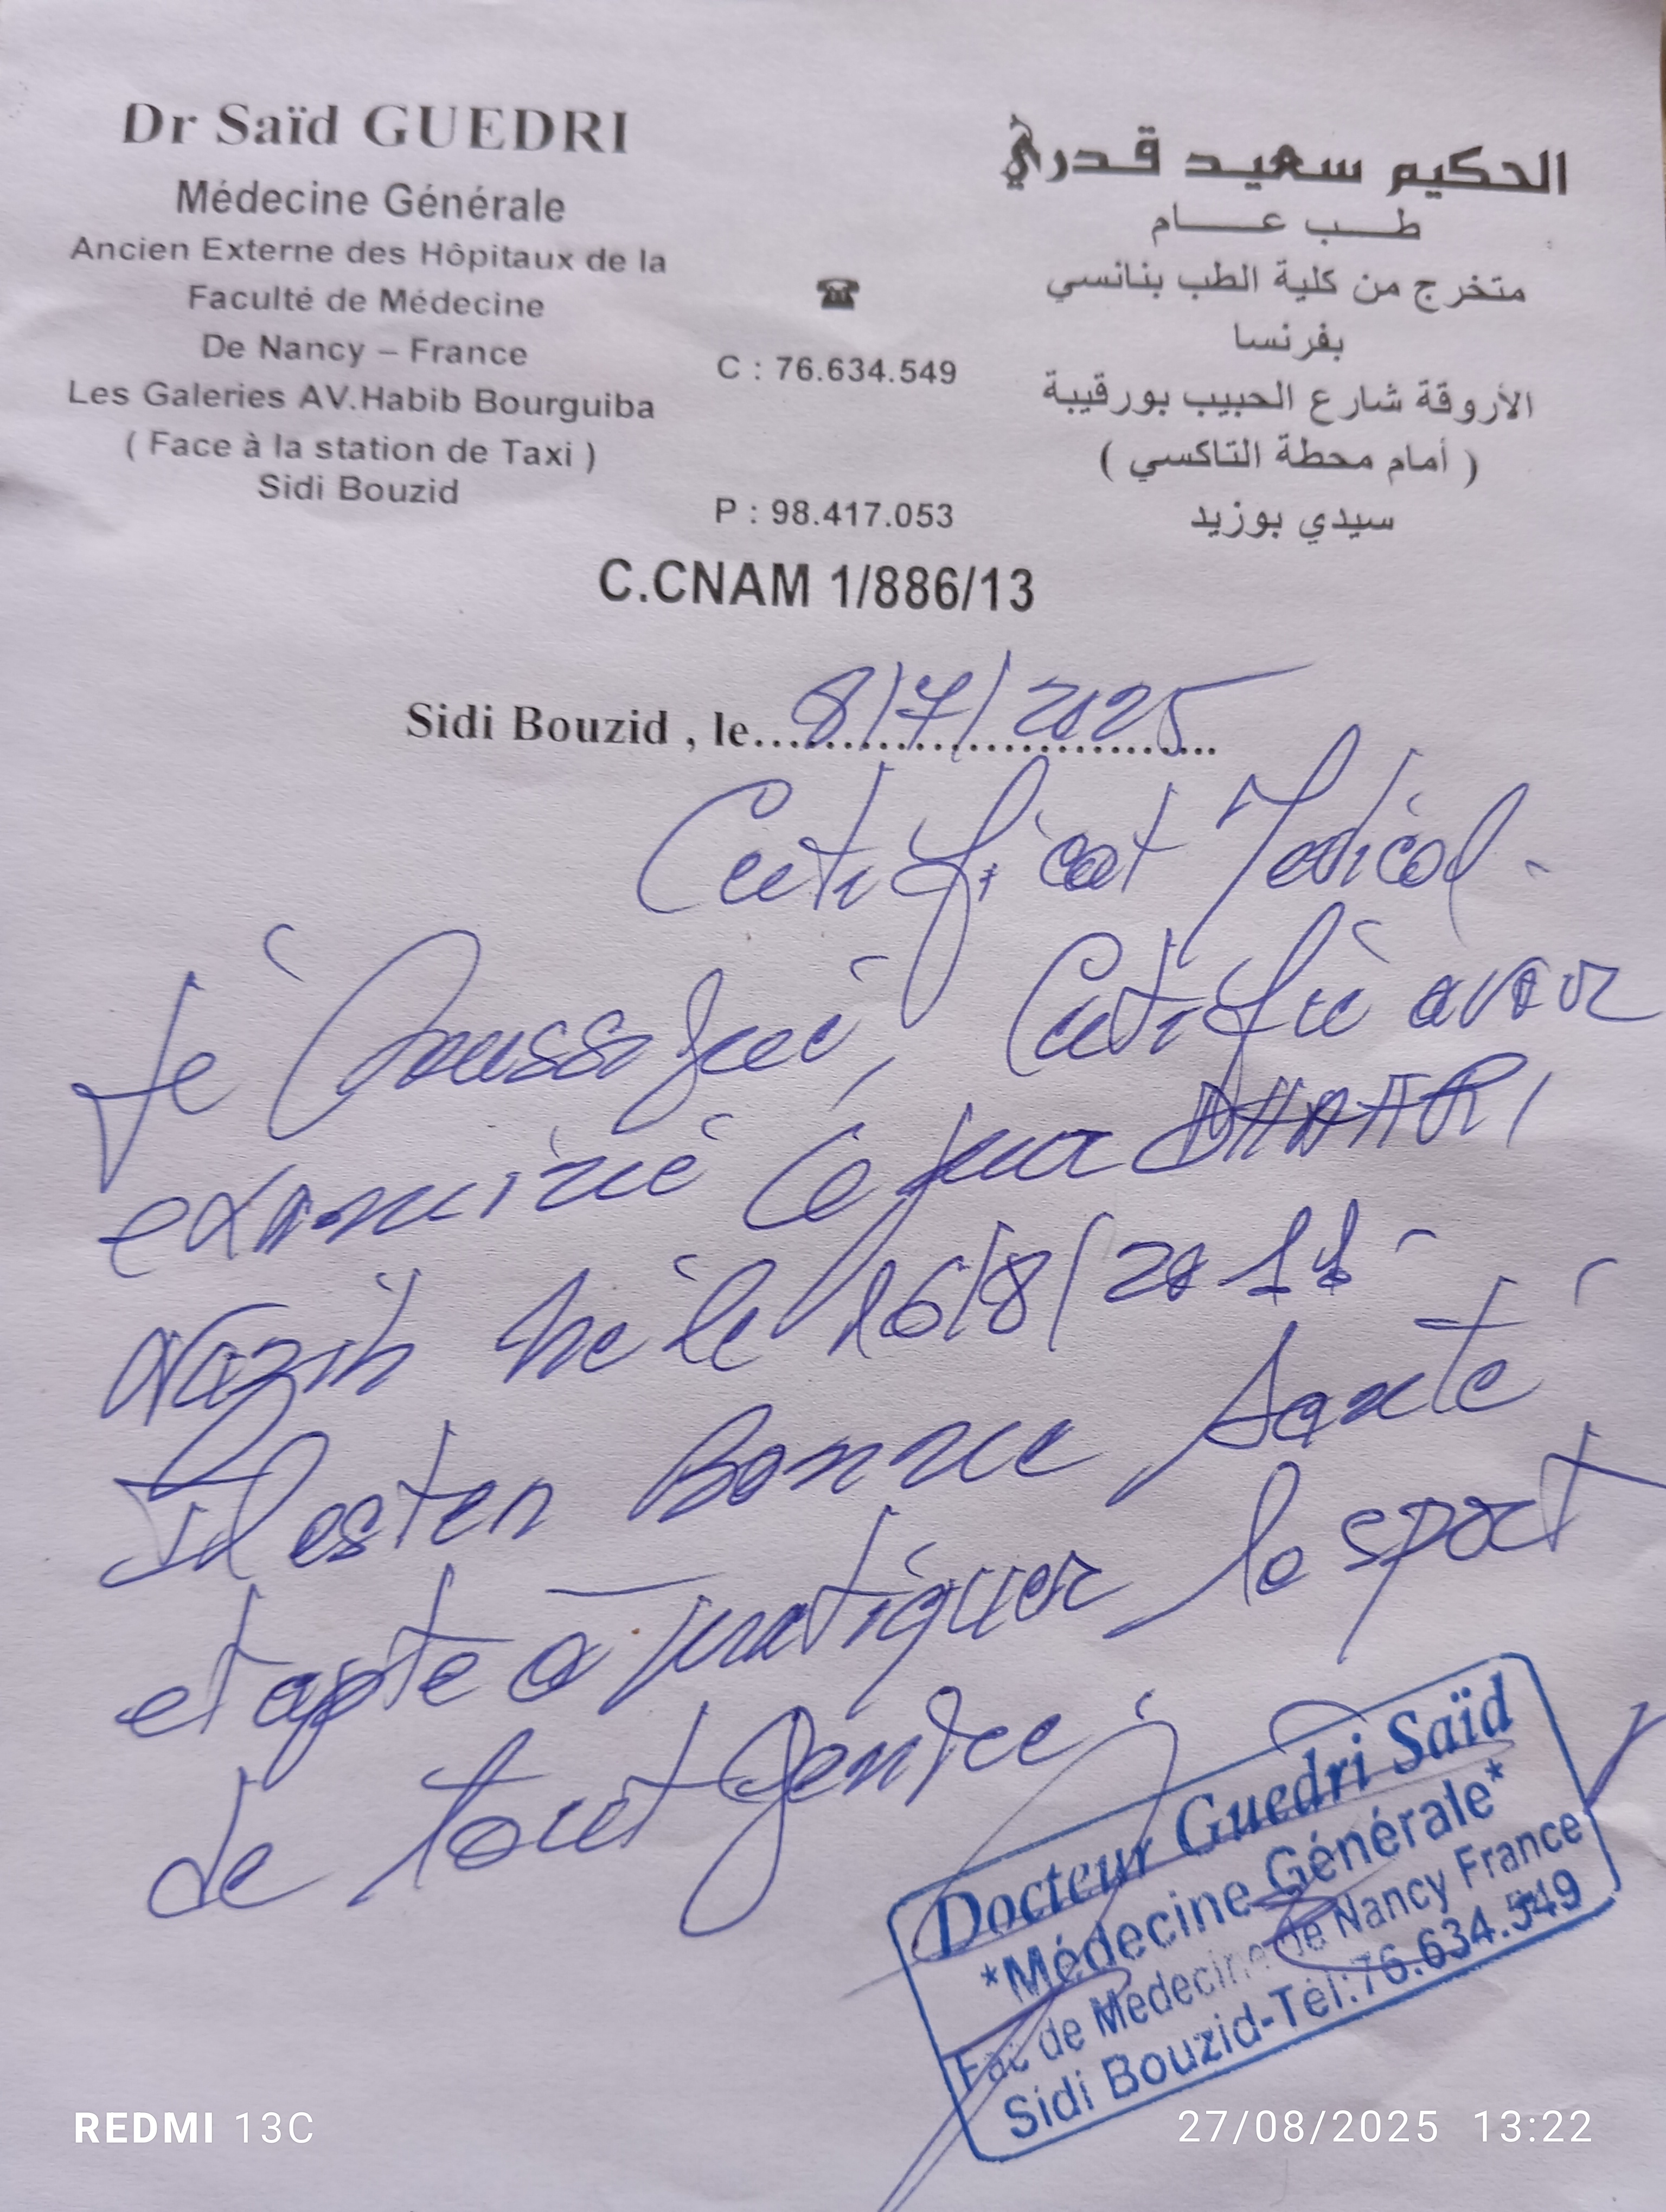 Dr Saïd GUEDRI
Médecine Générale
Ancien Externe des Hôpitaux de la
Faculté de Médecine
De Nancy – France
Les Galeries AV.Habib Bourguiba
( Face à la station de Taxi )
Sidi Bouzid
☎
C : 76.634.549
P : 98.417.053
الحكيم سعيد قدري
طب عام
متخرج من كلية الطب بنانسي
بفرنسا
الأروقة شارع الحبيب بورقيبة
( أمام محطة التاكسي )
سيدي بوزيد
C.CNAM 1/886/13
Sidi Bouzid , le 8/7/2025
Certificat Médical
Je Soussigné, Certifie avoir
examiné ce jour
Nazih né le 16/8/2011
Il est en Bonne Santé
et apte à pratiquer le sport
de tout genre
Docteur Guedri Saïd
*Médecine Générale*
Fac de Médecine de Nancy France
Sidi Bouzid-Tél:76.634.549
REDMI 13C
27/08/2025 13:22